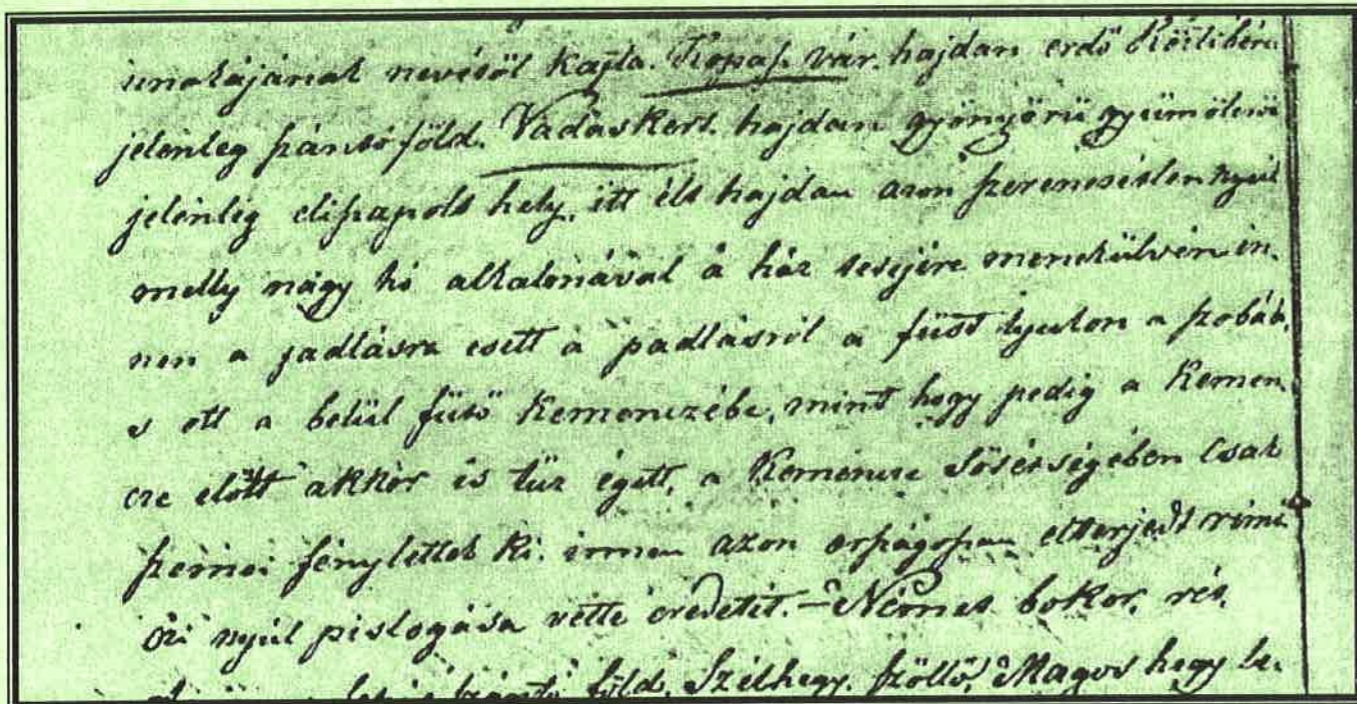 unokájának nevéről kapta. Kopasz vár. hajdan erdő
jelenleg szántó föld. Vadáskert. hajdan gyönyörü gyümölcsö
jelenleg eliszapolt hely, itt élt hajdan azon szerencsétlen nyul
melly nagy hó alkalmával a ház tetejére menekülvén in.
nen a padlásra esett a padlásról a füst lyukon a szobáb.
s ott a belül fütő kemenczébe, mint hogy pedig a kemen
cze előtt akkor is tüz égett, a kemencze sötétségében csak
szemei fénylettek ki. innen azon országoszan elterjedt rima
ózi nyúl pislogása vette eredetit. – Nemes bokor, rét,
szántó föld, Szélhegy. szöllő, Magos hegy le.